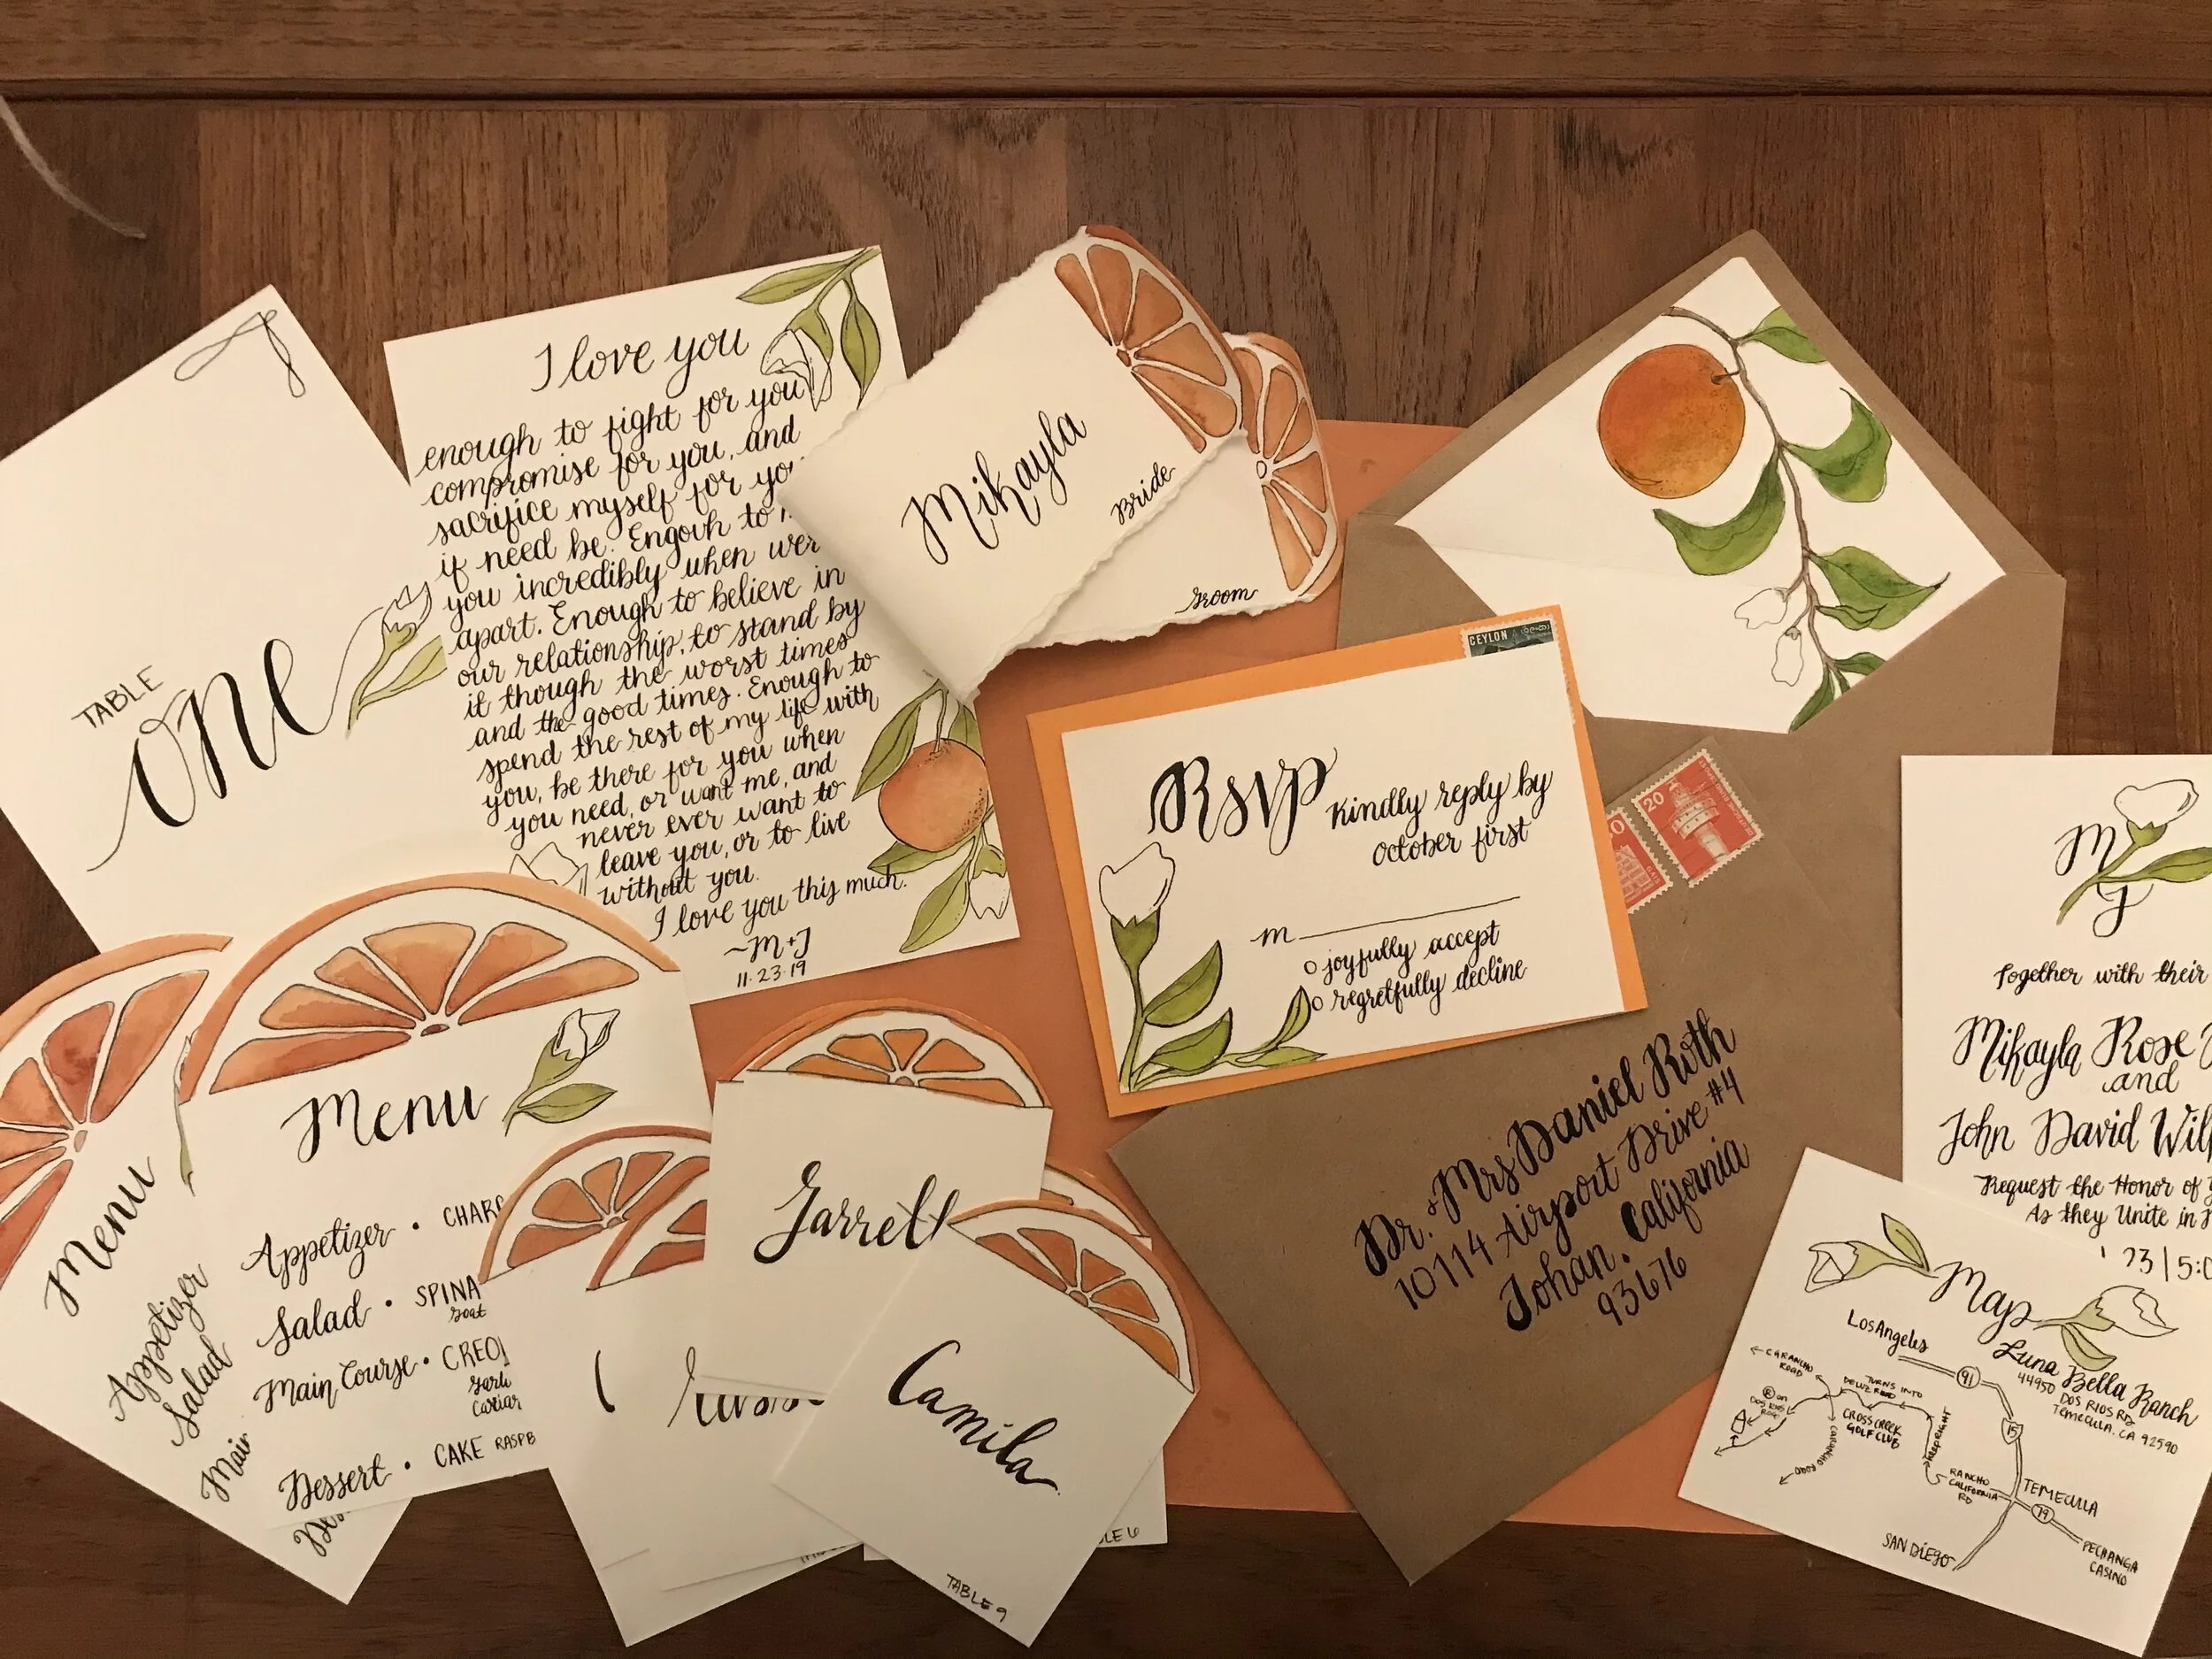 TABLE
one
I love you
enough to fight for you
compromise for you, and
sacrifice myself for you
if need be. Engouh to
you incredibly when wer
apart. Enough to believe in
our relationship, to stand by
it though the worst times
and the good times. Enough to
spend the rest of my life with
you, be there for you when
you need, or want me, and
never ever want to
leave you, or to live
without you.
I love you this much.
~M+J
11.23.19
Mikayla
Bride
Groom
CEYLON
RSVP Kindly reply by
October first
M
joyfully accept
regretfully decline
20
Dr. & Mrs Daniel Roth
10114 Airport Drive #4
Johan. California
93676
M
J
Together with their
Mikayla Rose
and
John David Wil
Request the Honor of
As they Unite in
23 | 5:0
Map
Luna Bella Ranch
44950 DOS RIOS RD
TEMECULA, CA 92590
Los Angeles
91
15
← CARANCHO ROAD
TURNS INTO
DE LUZ ROAD
CROSS CREEK
GOLF CLUB
CARANCHO ROAD
KEEP RIGHT
RANCHO
CALIFORNIA
RD
TEMECULA
79
SAN DIEGO
PECHANGA
CASINO
Menu
Appetizer
Salad
Main
Menu
Appetizer • CHARC
Salad • SPINA
Goat
Main Course • CREO
Garli
Caviar
Dessert • CAKE RASPB
Jarrell
Camila
TABLE 9
BLE 6